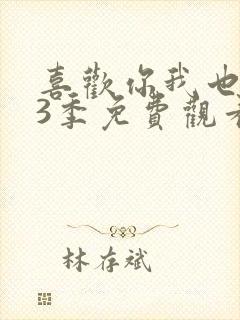 喜歡你我也
3季免費觀看
林存斌